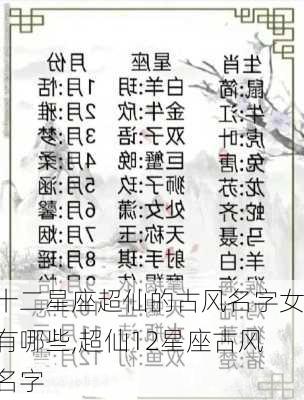 生肖 星座 月份
鼠:简 白羊:玥 1月:恬
牛:江 金牛:欣 2月:雅
虎:叶 双子:语 3月:梦
兔:唐 巨蟹:晚 4月:柔
龙:苏 狮子:玖 5月:涵
蛇:齐 处女:潇 6月:馨
马:聂 天称:玉 7月:烟
射手:琪 8月:瑶
十二星座超仙的古风名字女
有哪些,超仙12星座古风
名字